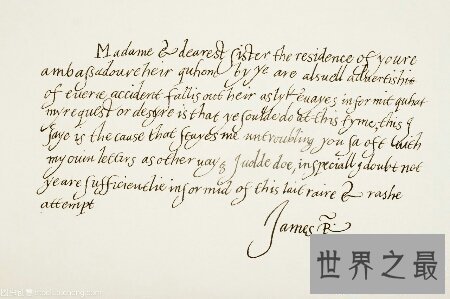 Madame & dearest sister the residence of youre
ambassadoure heir quhom by ye are alsuell advertishit
of everie accident fallis out heir as lykeuayes informit quhat
my request or desyre is that ye soulde do at this tyme, this I
saye is the cause that stayes me untroubling you sa oft with
my ouin lettirs as other wayes I udde doe, in speciall I doubt not
ye are sufficientlie informid of this lait raire & rashe
attempt
James R
世界之最